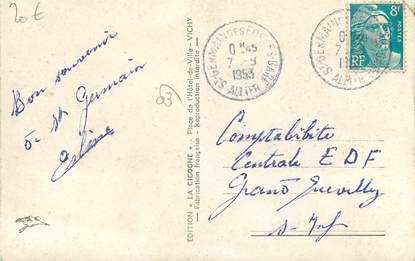 20€
Bon souvenir
de St Germain
03
EDITION « LA CICOGNE » - Place de l'Hôtel-de-Ville - VICHY
Fabrication française - Reproduction interdite
ST-GERMAIN-DES-FOSSES-GARE
7-9
1953
ALLIER
8F
POSTES
RF
Comptabilité
Centrale EDF
Grand Quevilly
S-Inf